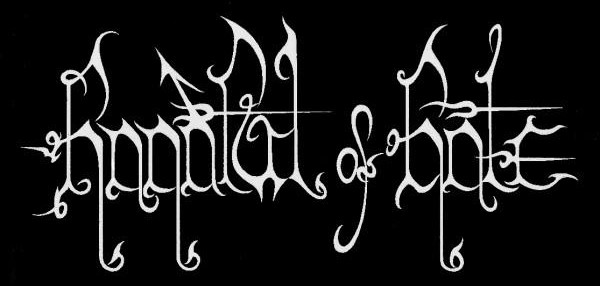 Handful of Hate